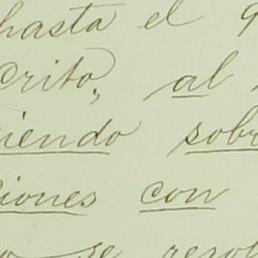 hasta el
crito, al
iendo sobr
ciones con
se